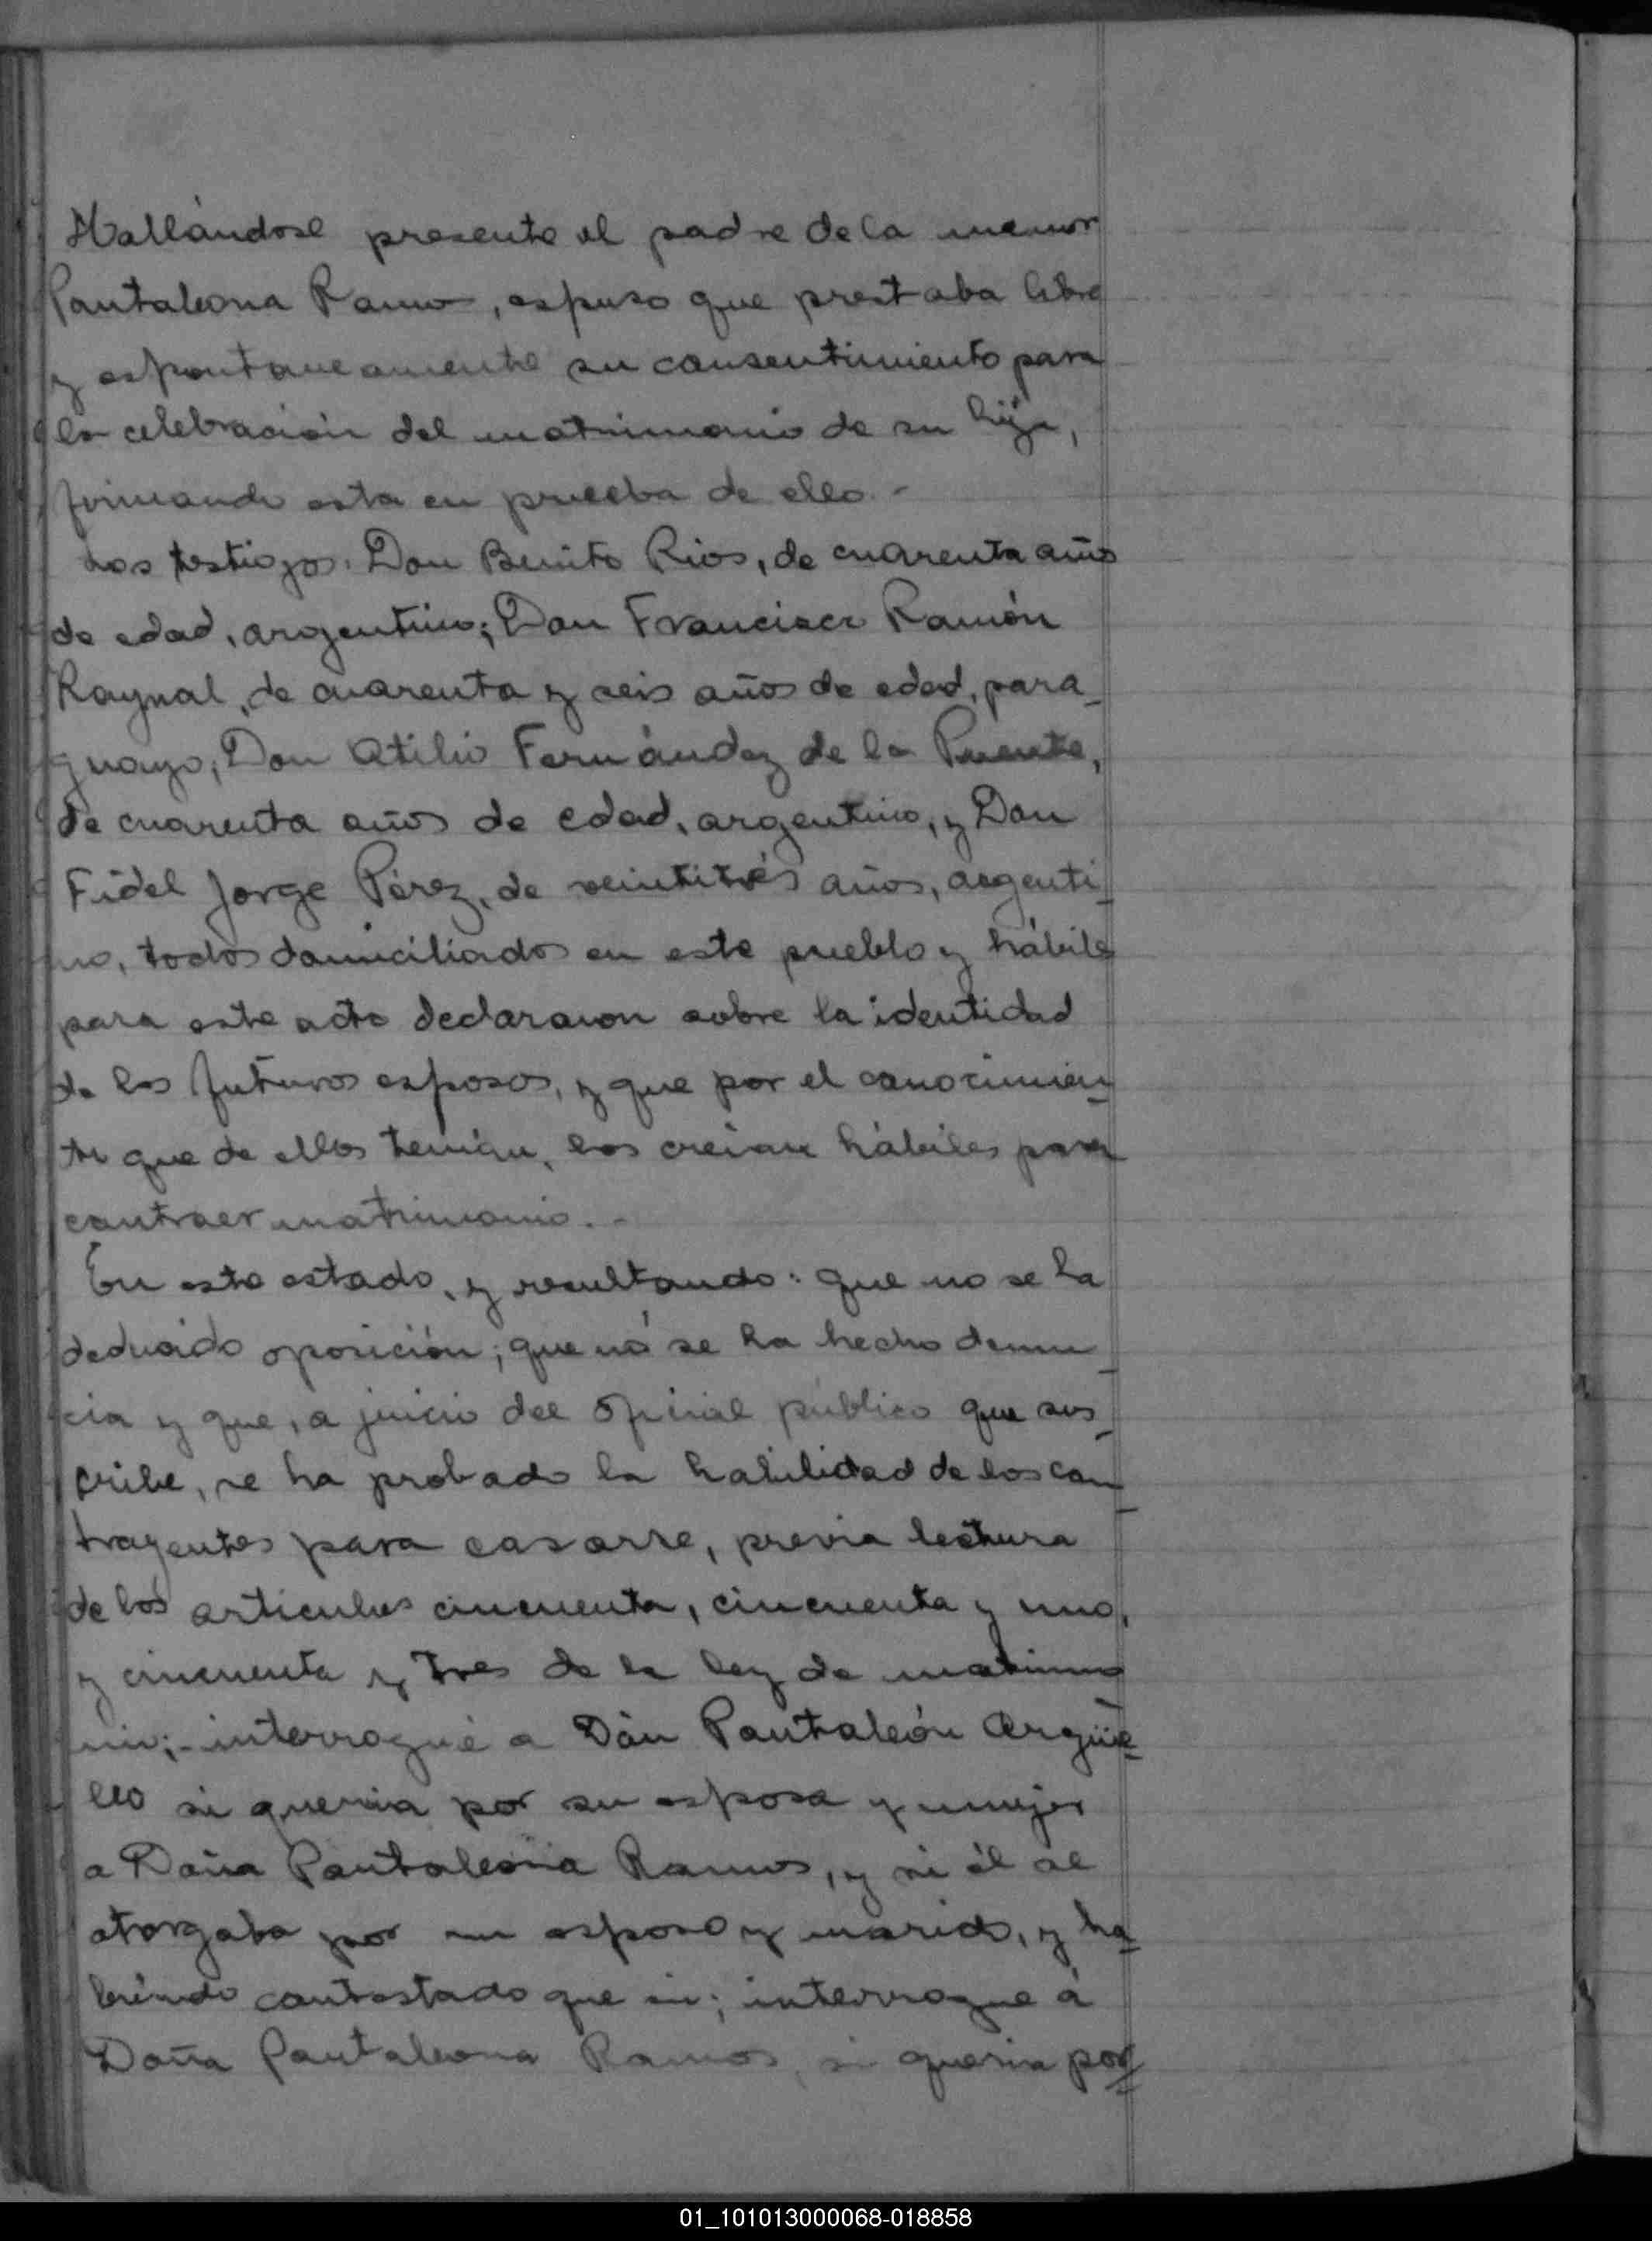 Hallándose presente el padre de la menor
Pantaleona Ramos, espuso que prestaba libre
y espontaneamente su consentimiento para
la celebración del matrimonio de su hija,
firmando esta en prueba de ello.-
Los testigos: Don Benito Rios, de cuarenta años
de edad, argentino; Don Francisco Ramón
Raynal, de cuarenta y seis años de edad, para_
guayo; Don Atilio Fernández de la Puente,
de cuarenta años de edad, argentino, y Don
Fidel Jorge Pérez, de veintitrés años, argenti_
no, todos domiciliados en este pueblo y hábiles
para este acto declararon sobre la identidad
de los futuros esposos, y que por el conocimien_
to que de ellos tenían, los creían hábiles para
contraer matrimonio.-
En este estado, y resultando: que no se ha
deducido oposición; que nó se ha hecho denun_
cia y que, a juicio del Oficial público que sus_
cribe, se ha probado la habilidad de los con_
trayentes para casarse, previa lectura
de los articulos cincuenta, cincuenta y uno,
y cincuenta y tres de la ley de matrimo
nio;- interrogué a Dón Pantaleón Argüe_
llo si queria por su esposa y mujer
a Doña Pantaleona Ramos, y si él se
otorgaba por su esposo y marido, y ha_
biéndo contestado que si; interrogue á
Doña Pantaleona Ramos, si queria por
01_101013000068-018858